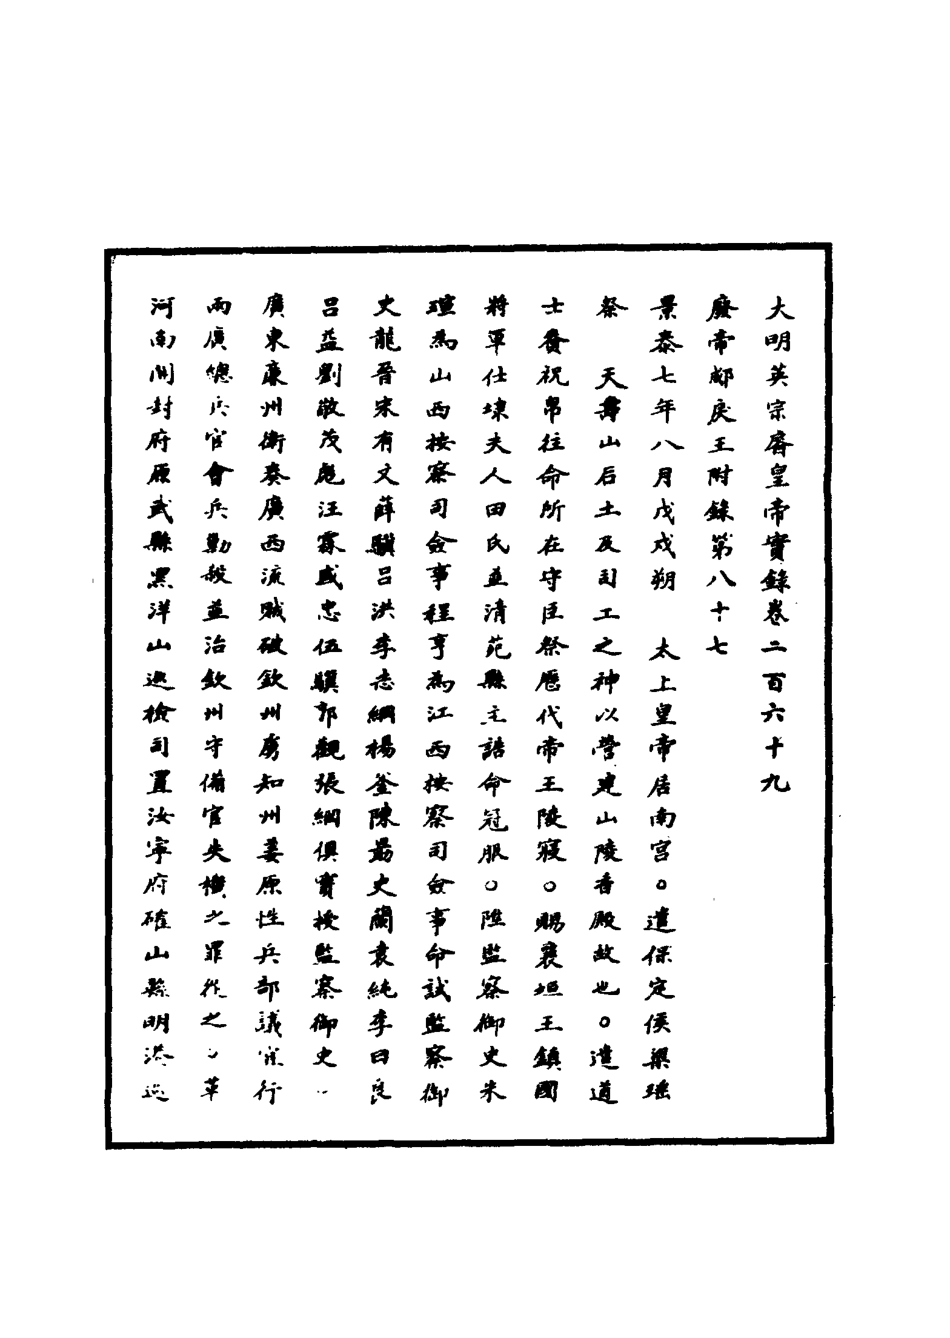 大明英宗睿皇帝實錄卷二百六十九
廢帝郕戾王附錄第八十七
景泰七年八月戊戌朔　太上皇帝居南宮○遣保定侯梁瑤
祭　天壽山后土及司工之神以營建山陵香殿故也○遣道
士賫祝帛往命所在守臣祭歷代帝王陵寢○賜襄垣王鎮國
將軍仕㙉夫人田氏並清苑縣主誥命冠服○陞監察御史朱
瑄為山西按察司僉事程亨為江西按察司僉事命試監察御
史龍晉宋有文薛驥呂洪李志綱楊釜陳勗史蘭袁純李曰良
呂益劉敬茂彪汪霖盛忠伍驥郭觀張綱俱實授監察御史○
廣東廉州衛奏廣西流賊破欽州虜知州姜原性兵部議宜行
兩廣總兵官會兵勦殺並治欽州守備官失機之罪從之○革
河南開封府原武縣黑洋山巡檢司置汝寧府確山縣明港巡